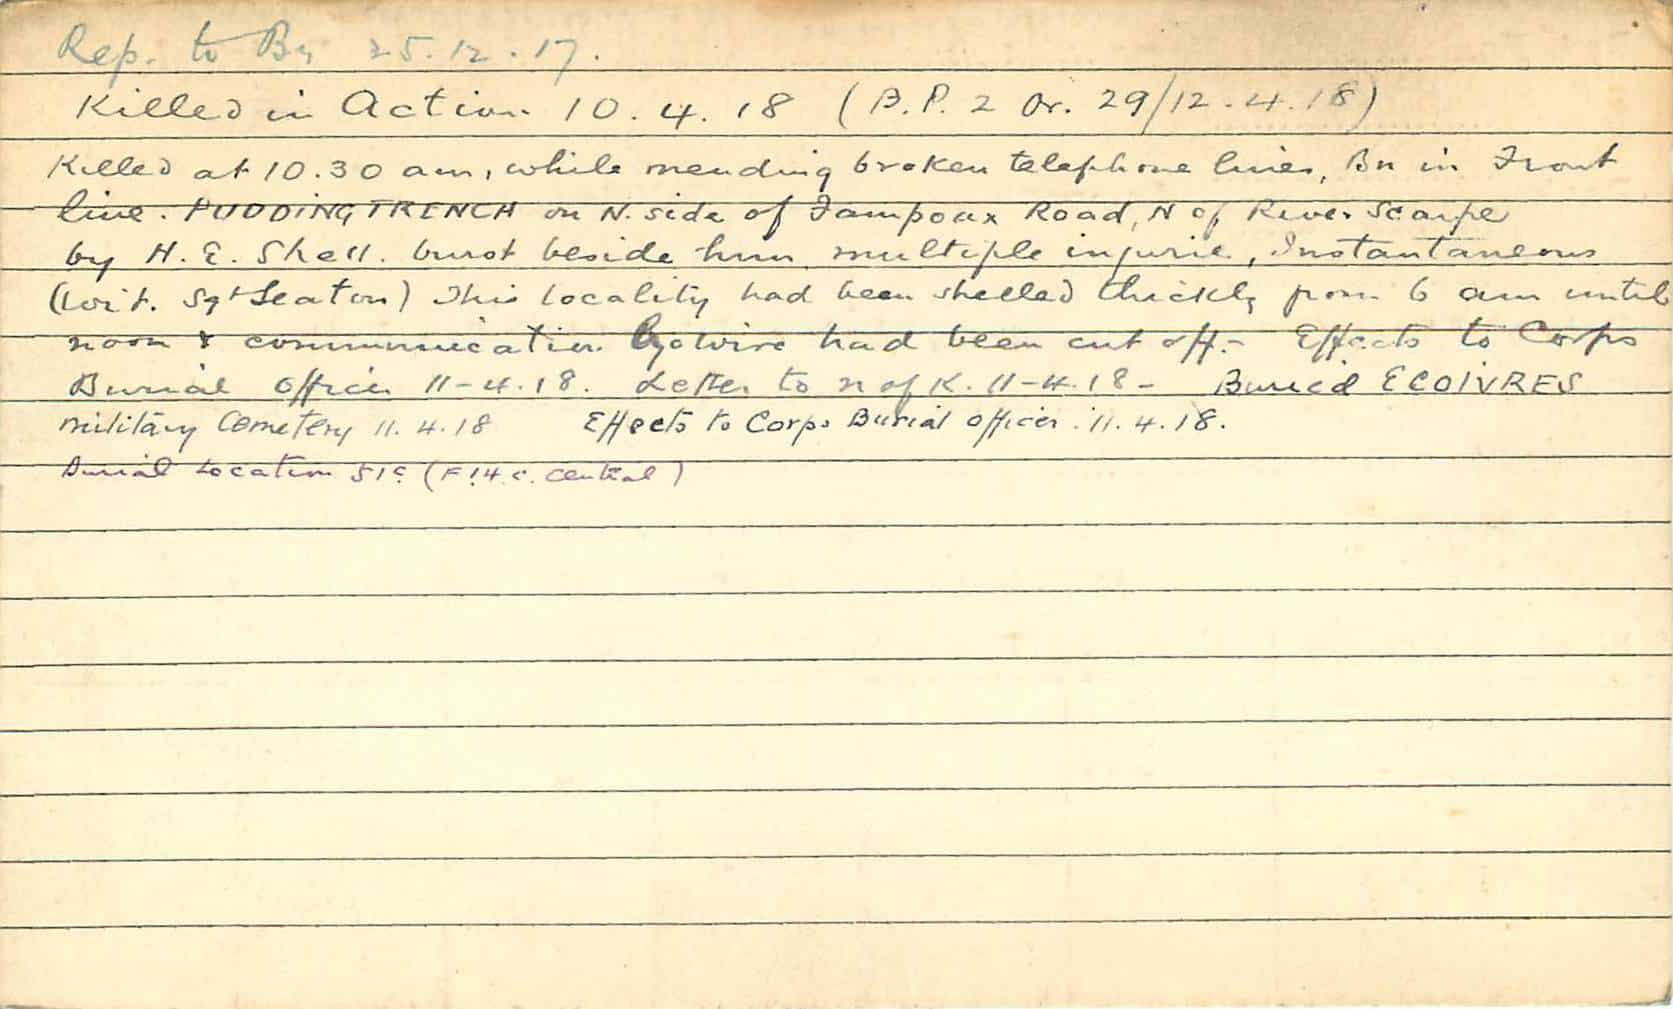 Rep. to Bn 25.12.17.
Killed in Action 10.4.18 (B.P. 2 Or. 29/12.4.18)
Killed at 10.30 am, while mending broken telephone lines, Bn in Front
line. PUDDING TRENCH on N. side of Fampoux Road, N of River Scarpe
by H.E. Shell. burst beside him multiple injurie, Instantaneous
(Wit. Sgt Seaton) This locality had been shelled thickly from 6 am until
noon & communication by wire had been cut off.- Effects to Corps
Burial Officer 11-4.18. Letter to N of K. 11-4.18- Buried ECOIVRES
Military Cemetery 11.4.18 Effects to Corps Burial Officer. 11.4.18.
Burial Location 51c (F.14.c. central)